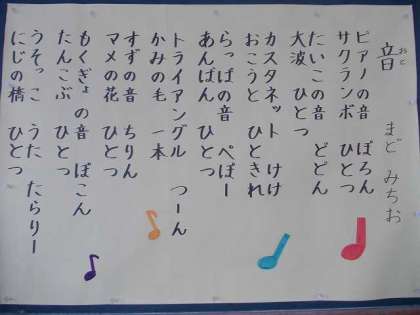 音
おと
まど みちお
ピアノの音 ぽろん
サクランボ ひとつ
たいこの音 どどん
大波 ひとつ
カスタネット けけ
おこうこ ひときれ
らっぱの音 ぺぽー
あんぱん ひとつ
トライアングル つーん
かみの毛 一本
すずの音 ちりん
マメの花 ひとつ
もくぎょの音 ぽこん
たんこぶ ひとつ
うそっこ うた たらりー
にじの橋 ひとつ